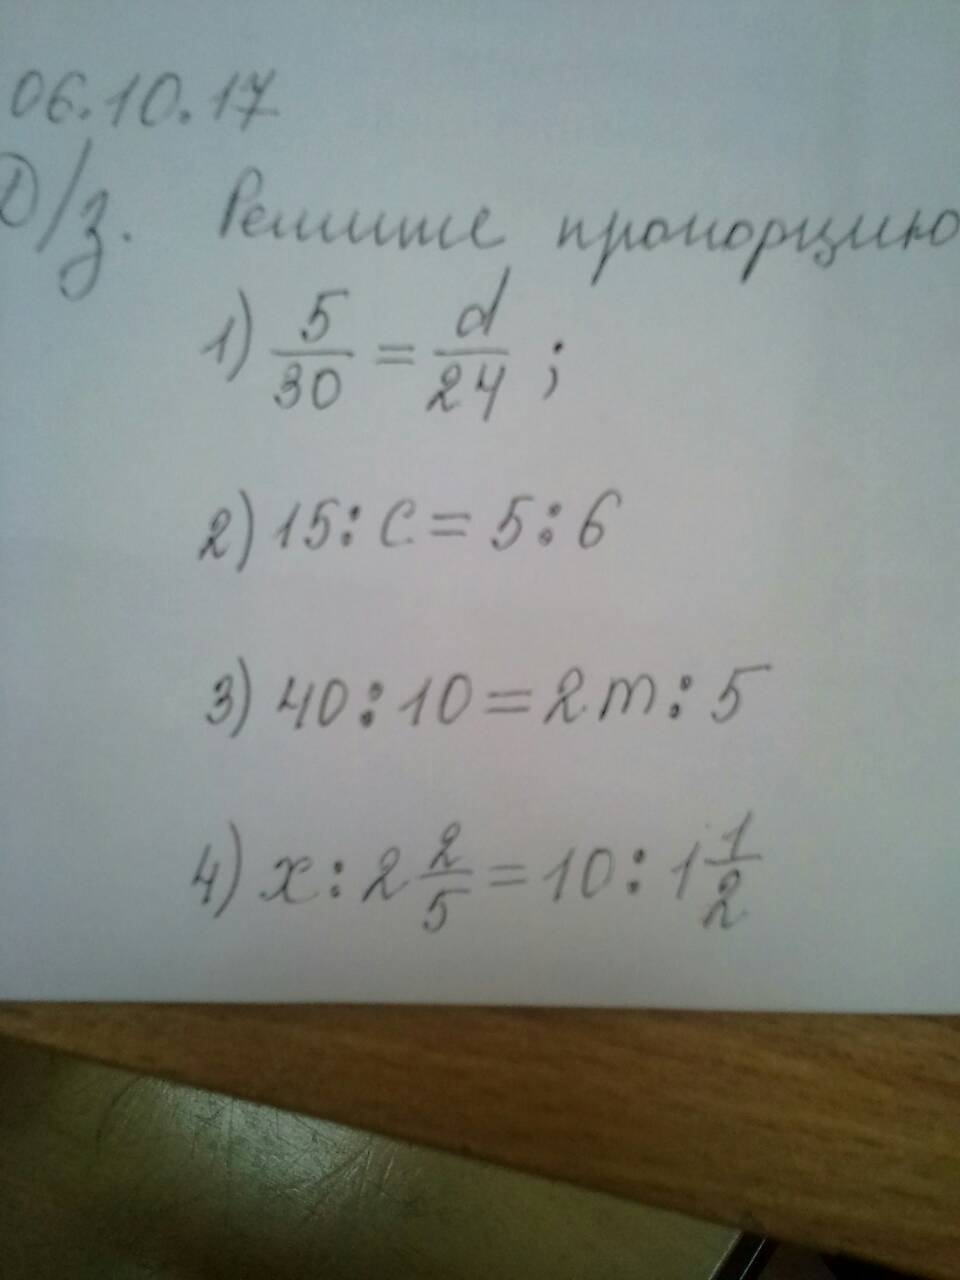 06.10.17
Д/з. Решите пропорцию
1) 5/30 = d/24 ;
2) 15 : c = 5 : 6
3) 40 : 10 = 2m : 5
4) x : 2 2/5 = 10 : 1 1/2